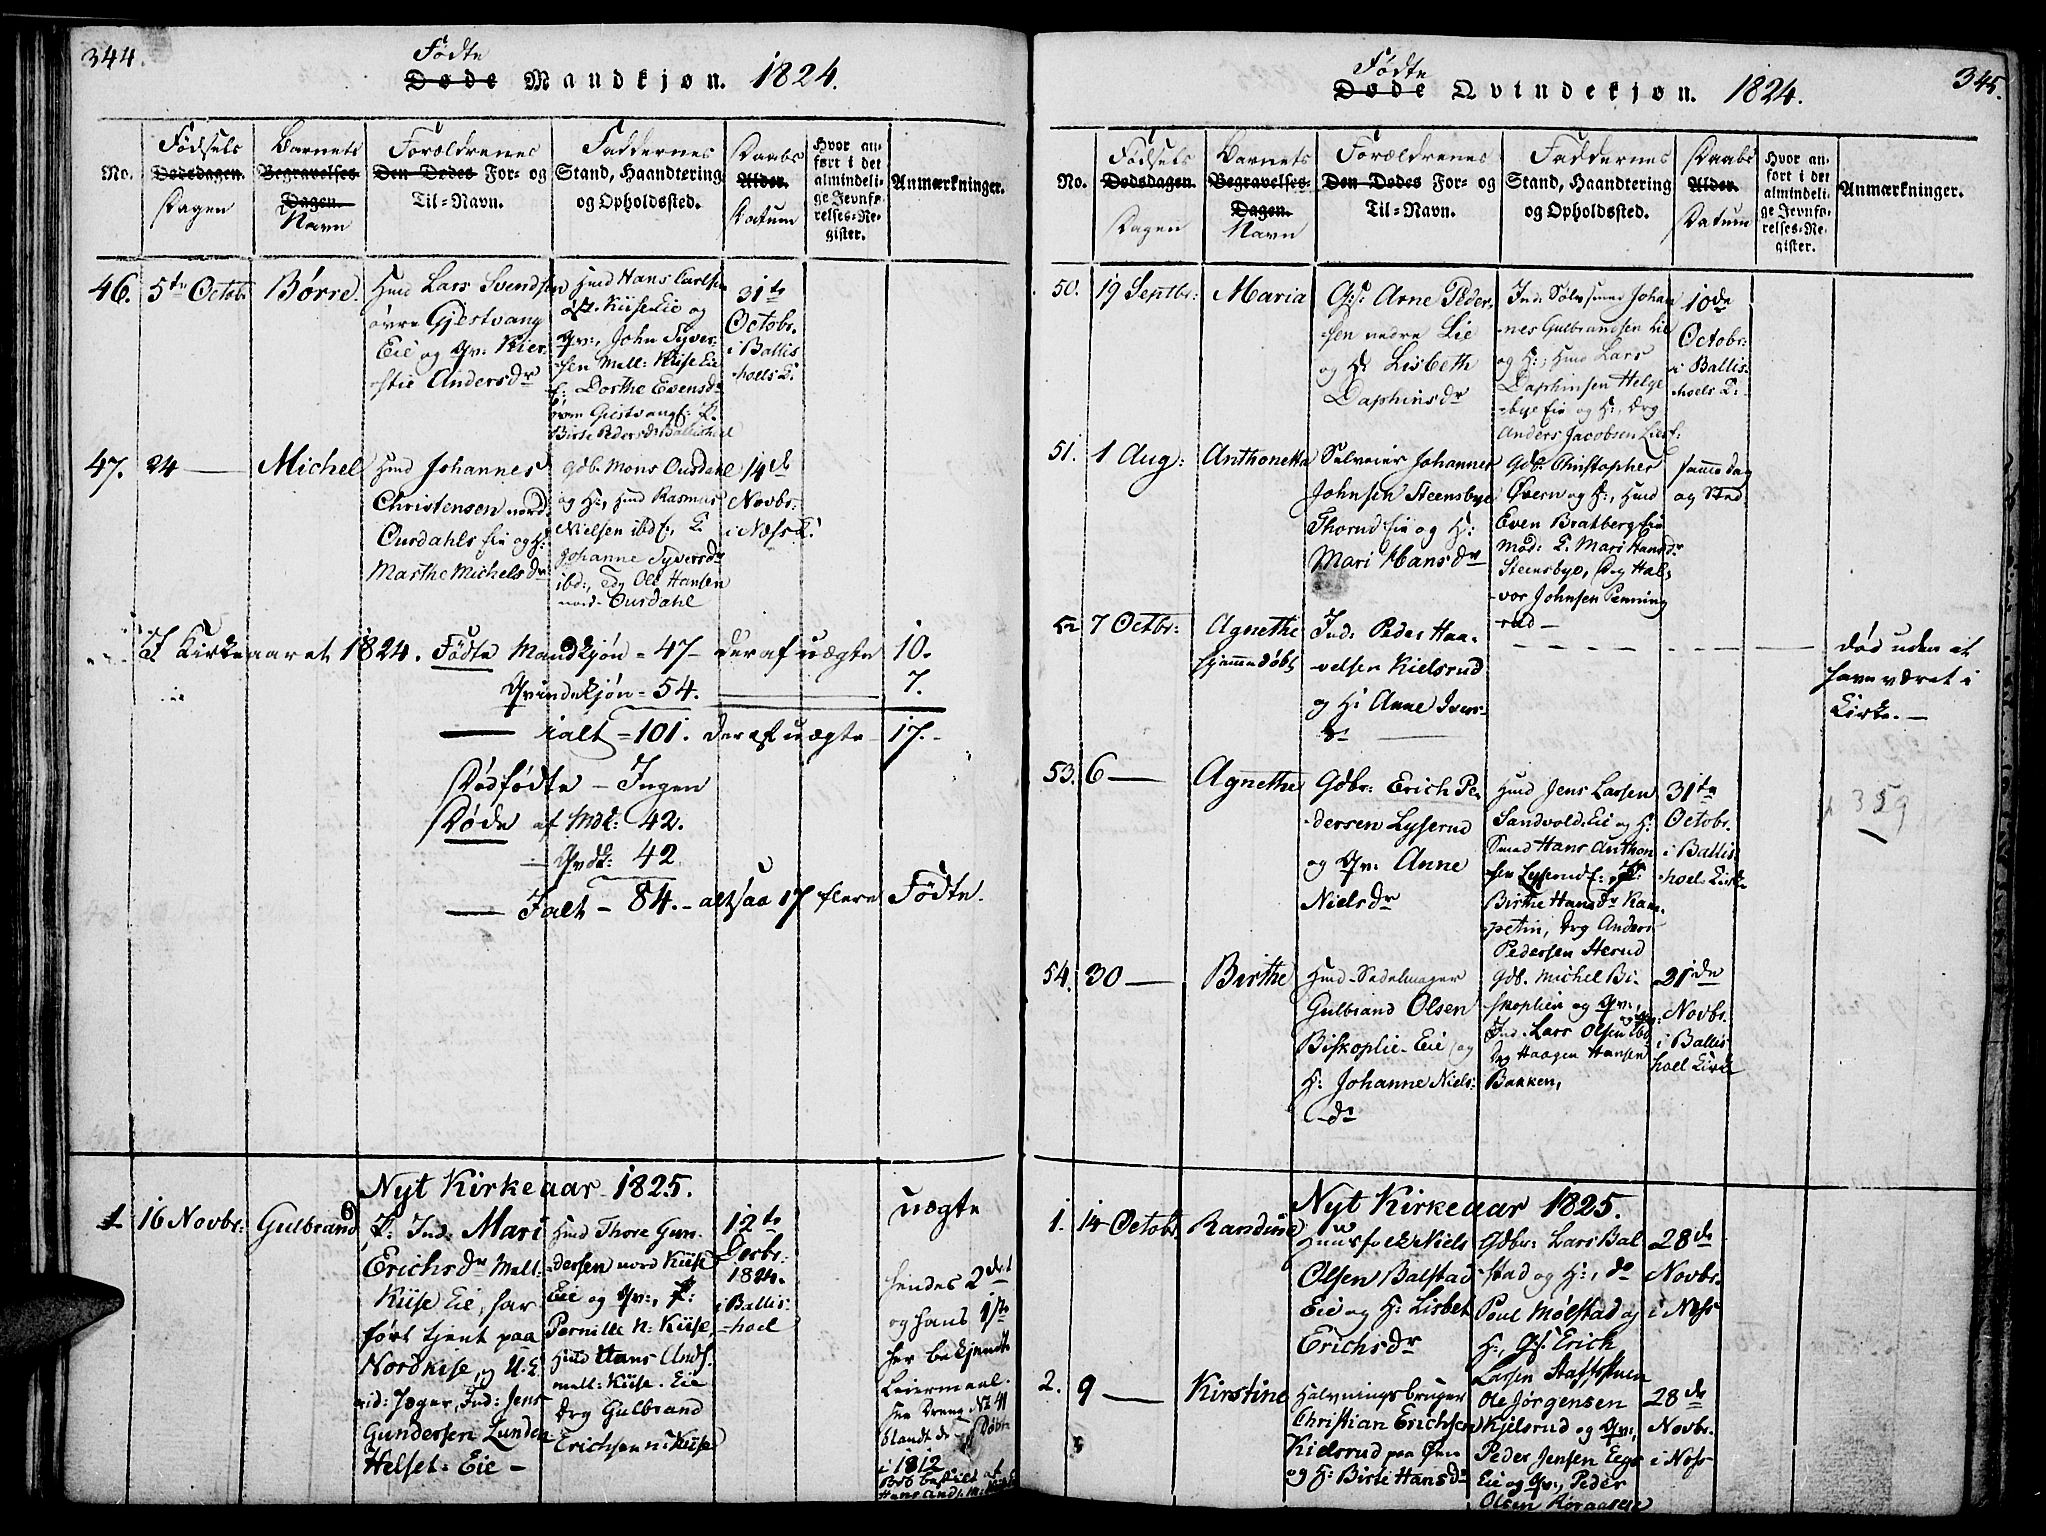 344.
Fødte
Døde Mandkjøn. 1824.
No.
Fødsels
Dødsdagen.
Dagen
Barnets
Begravelses-
Dagen.
Navn
Forældrenes
Den Dødes For- og
Til-Navn.
Faddernes
Stand, Haandtering
og Opholdssted.
Daabs
Alder.
Datum
Hvor an-
ført i det
almindeli-
ge Jevnfø-
relses-Re-
gister.
Anmærkninger.
46. 5te Octobr. Børre.
Hmd Lars Svendsen
øvre Gjestvang
Eie og Qv: Kier-
stie Andersdr
Hmd Hans Carlsen
øst. Kiise Eie og
Qv:, John Syver-
sen Mell: Kiise Eie
f: Dorthe Evensdr
øvre Giestvang f: P.
Birte Pedersdr Ballishoel
31te
Octobr.
i Ballis
hoels K.
47. 24 — Michel
Hmd Johannes
Christensen nord.
Ousdahls Eie og H:
Marthe Michelsdr
Gdb. Mons Ousdahl
og H:, Hmd Rasmus
Nielsen ibd f, P.
Johanne Syversdr
ibd:, Drg Ole Hansen
nord- Ousdahl
14de
Novbr:
i Næss K.
I Kirkeaaret 1824. Fødte Mandkjøn = 47 - deraf uægte 10.
Qvindekjøn = 54. 7.
ialt = 101. deraf uægte 17.-
Dødfødte - Ingen
Døde af Mdk: 42.
- Qvdk: 42
Ialt - 84. - altsaa 17 flere Fødte.
Nyt Kirkeaar 1825.
1 16 Novbr: Gulbrand
P: Ind: Mari
Erichsdr Mell:
Kiise Eie, har
ført tjent paa
Nordkise, og U. C.
rid: Jæger, Ind: Jens
Gundersen Lunden
Helset= Eie -
Hmd Thore Gun-
dersen nord Kiise
Eie og Qv:, P:
Pernille N: Kiise,
Huld Hans Ands.
mell: Kiise. Eie
Drg Gulbrand
Erichsen n: Kiise
12te
Decbr:
1824.
i Ballis-
hoel
uægte
hendes 2det
og hans 1ste
her bekjendte
Leiermaal.
See Dreng No 41
blandt de Døbte
i 1812
345.
Fødte
Døde Qvindekjøn. 1824.
No.
Fødsels
Dødsdagen.
Dagen
Barnets
Begravelses-
Dagen.
Navn
Forældrenes
Den Dødes For- og
Til-Navn.
Faddernes
Stand, Haandtering
og Opholdssted.
Daabs
Alder.
Datum
Hvor an-
ført i det
almindeli-
ge Jevnfø-
relses-Re-
gister.
Anmærkninger.
50. 19 Septbr: Maria
G:f: Arne Peder-
sen nedre Lie
og H: Lisbeth
Daphinsdr
Ind: Sølvsmed Johan
nes Gulbrandsen Lie
og H:, Hmd Lars
Daphinsen Helge
bye Eie og H:, Drg
Anders Jacobsen Lie f:
10de
Octobr:
i Ballis-
hoels K.
51. 1 Aug: Anthonetta
Selveier Johannes
Johnsen Steensbye
Thorud Eie og H:
Mari Hansdr
Gdb: Christopher
Øvern og H:, Hmd
Even Bratberg Eie
Mød: P. Mari Hansdr
Steensbye, Drg Hal-
vor Johnsen Penning
rud —
samme dag
og Sted
52 7 Octbr: Agnethe
hjemmedøbt
Ind: Peder Haa-
velsen Kielsrud
og H: Anne Iver-
dr
død uden at
have været i
Kirke. —
53. 6 — Agnethe
Gdbr: Erich Pe-
dersen Lyserud
og Qv: Anne
Nielsdr
Hmd Jens Larsen
Sandvold. Eie og H:
Smed Hans Anthon
sen Lyserud f:, P:
Birthe Hansdr Kom-
petin, Drg Anders
Pedersen Herud
31te
Octobr.
i Ballis
hoels Kirke
359
54. 30 — Birthe
Hmd Sadelmager
Gulbrand Olsen
Biskoplie- Eie og
H: Johanne Niels:
dr
Gdb. Michel Bi-
skoplien og Qv:,
Ind. Lars Olsen ibd
Drg Haagen Hansen
Bakken,
21de
Novbr.
i Ballis
hoel Kirke
Nyt Kirkeaar 1825.
1. 14 Octobr. Randine
Huusfolk Niels
Olsen Balstad
Eie og H: Lisbet
Erichsdr
Gdbr: Lars Bal
stad og H:, do
Poul Mølstad og
H:, Gf: Erich
Larsen Staffstuen
28de
Novbr.
i Næss
2. 9 — Kirstine
Halvningsbruger
Christian Erichsen
Kielsrud paa Øen
og H: Birte Hansdr
Ole Jørgensen
Kjelsrud og Qv:,
Peder Jensen Eegs
Eie og Qv:, Peder
Olsen Roraasene
28de
Novbr.
i Næss